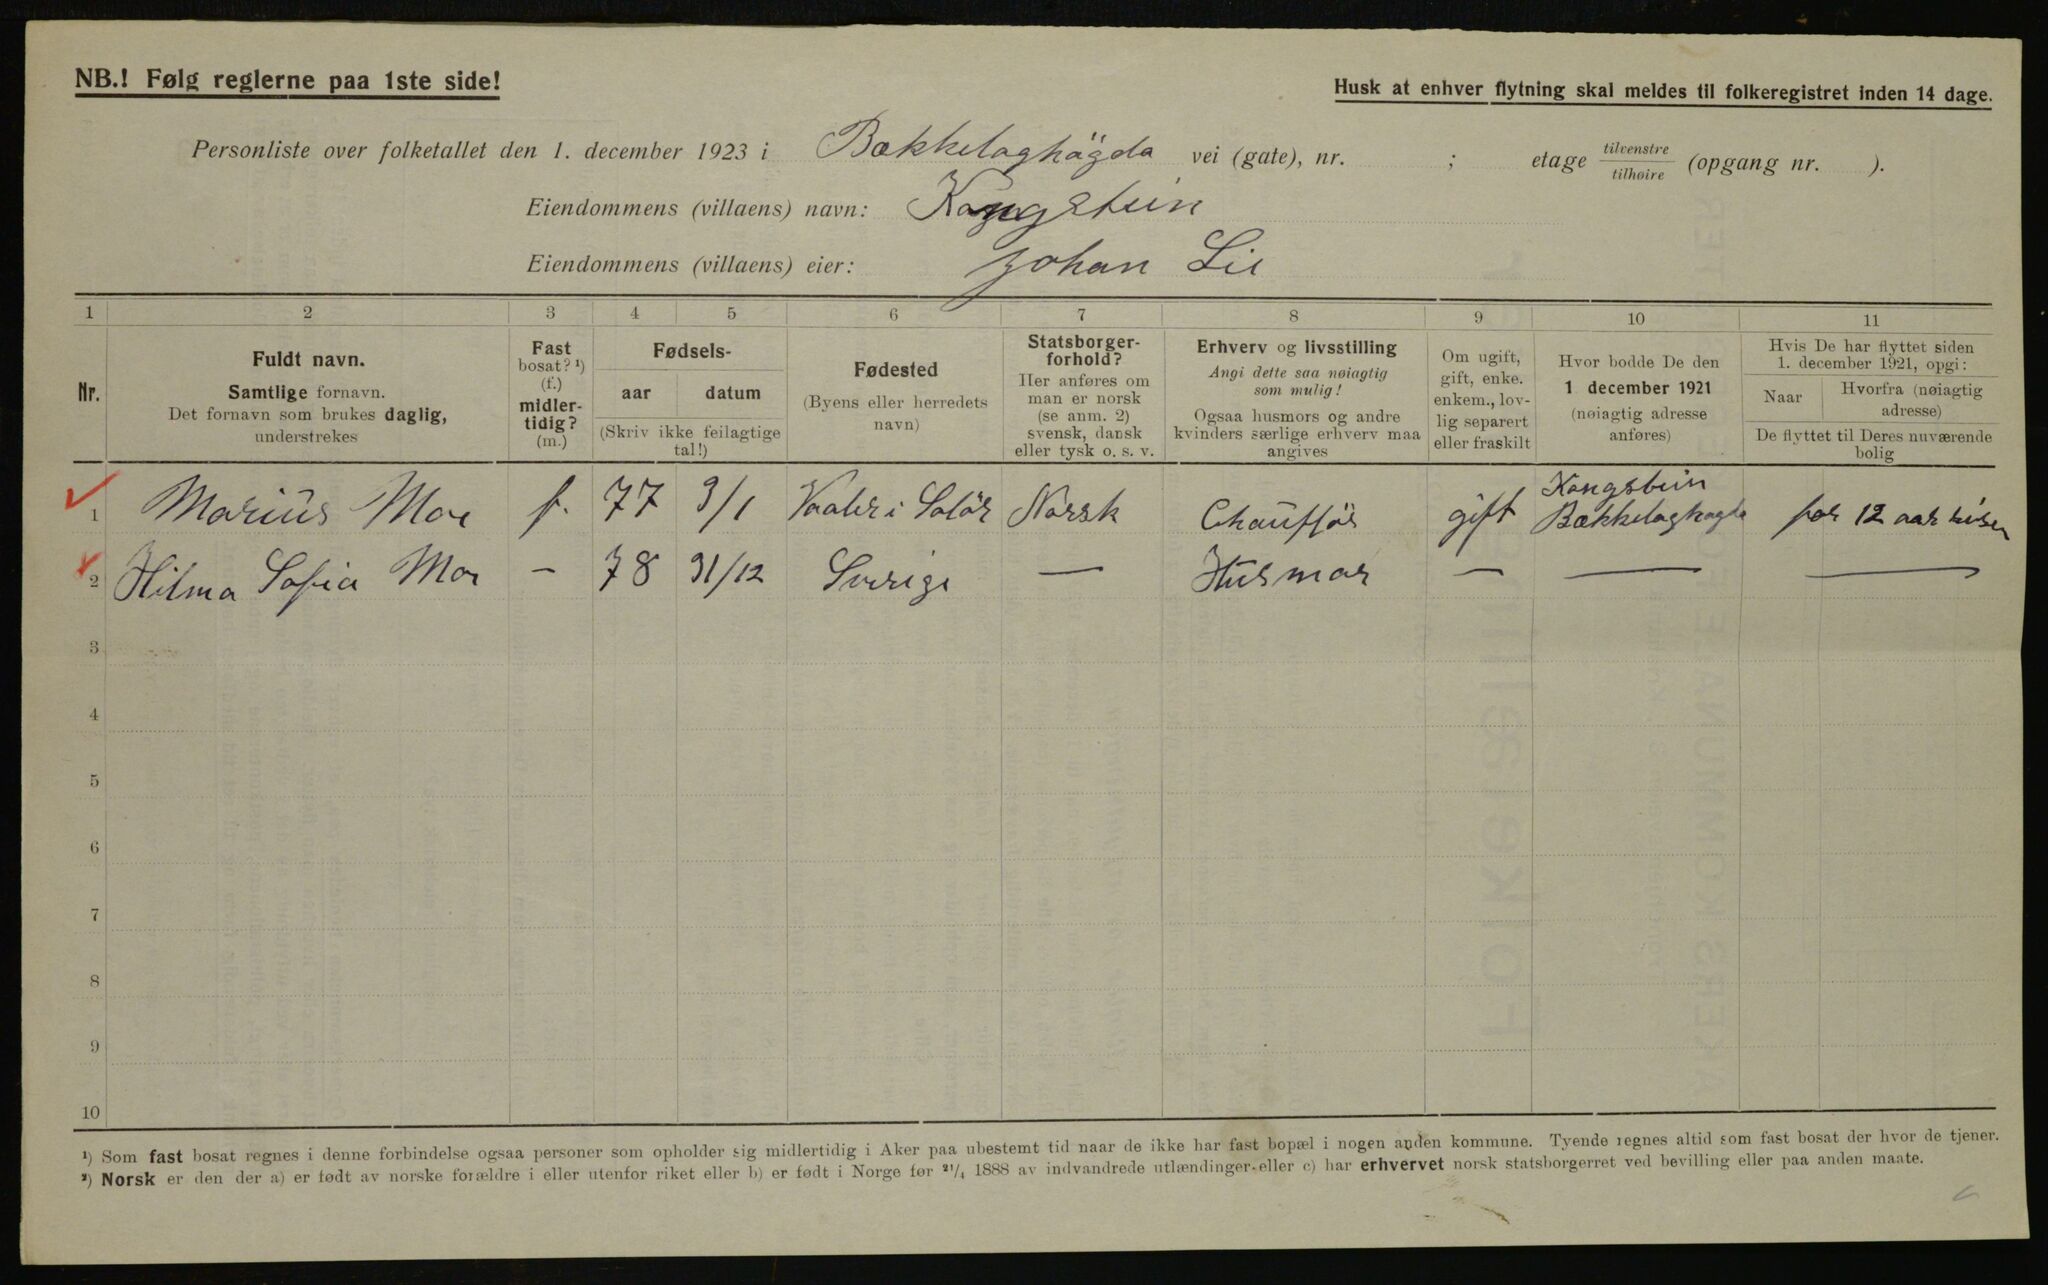 NB.! Følg reglerne paa 1ste side!
Husk at enhver flytning skal meldes til folkeregistret inden 14 dage.
Personliste over folketallet den 1. december 1923 i Bækkelaghögda vei (gate), nr. ; etage tilvenstre / tilhøire (opgang nr. ).
Eiendommens (villaens) navn: Kongstein
Eiendommens (villaens) eier: Johan Lie
1 2 3 4 5 6 7 8 9 10 11
Nr.
Fuldt navn.
Samtlige fornavn.
Det fornavn som brukes daglig,
understrekes
Fast
bosat? ¹)
(f.)
midler-
tidig?
(m.)
Fødsels-
aar datum
(Skriv ikke feilagtige
tal!)
Fødested
(Byens eller herredets
navn)
Statsborger-
forhold?
Her anføres om
man er norsk
(se anm. 2)
svensk, dansk
eller tysk o. s. v.
Erhverv og livsstilling
Angi dette saa nøiagtig
som mulig!
Ogsaa husmors og andre
kvinders særlige erhverv maa
angives
Om ugift,
gift, enke.
enkem., lov-
lig separert
eller fraskilt
Hvor bodde De den
1 december 1921
(nøiagtig adresse
anføres)
Hvis De har flyttet siden
1. december 1921, opgi:
Naar
Hvorfra (nøiagtig
adresse)
De flyttet til Deres nuværende
bolig
1 Marius Moe f. 77 3/1 Vaaler i Solör Norsk Chaufför gift Kongstein
Bækkelaghøgda for 12 aar siden
2 Hilma Sofia Moe – 78 31/12 Sverige — Husmor — — —
3
4
5
6
7
8
9
10
¹) Som fast bosat regnes i denne forbindelse ogsaa personer som opholder sig midlertidig i Aker paa ubestemt tid naar de ikke har fast bopæl i nogen anden kommune. Tyende regnes altid som fast bosat der hvor de tjener.
²) Norsk er den der a) er født av norske forældre i eller utenfor riket eller b) er født i Norge før ²¹/₄ 1888 av indvandrede utlændinger eller c) har erhvervet norsk statsborgerret ved bevilling eller paa anden maate.